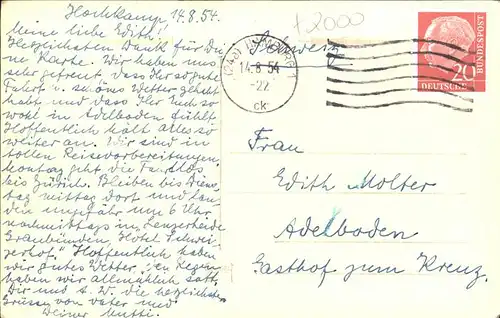 Hochkamp, 14.8.54.
Meine liebe Edith!
Herzlichsten Dank für Dei
ne Karte. Wir haben uns
sehr gefreut, dass Ihr so gute
Fahrt u. schönes Wetter gehabt
habt und dass Ihr Euch so
wohl in Adelboden fühlt.
Hoffentlich hält alles so
weiter an. Wir sind in
tollen Reisevorbereitungen,
Montag geht die Fahrt los
bis Zürich. Bleiben bis Diens
tag mittag dort und lan
den ungefähr um 6 Uhr
nachmittags in Lenzerheide
Graubünden, Hotel Schwei
zerhof." Hoffentlich haben
wir gutes Wetter, den Regen
haben wir allmählich satt.
Dir und A. W. die herzlichsten
Grüsse von Vater und
Deiner Mutti.
12000
Schweiz
(24a) HAMBURG
14.8.54
-22
ck
DEUTSCHE BUNDESPOST
20
Frau
Edith Molter
Adelboden
Gasthof zum Kreuz.